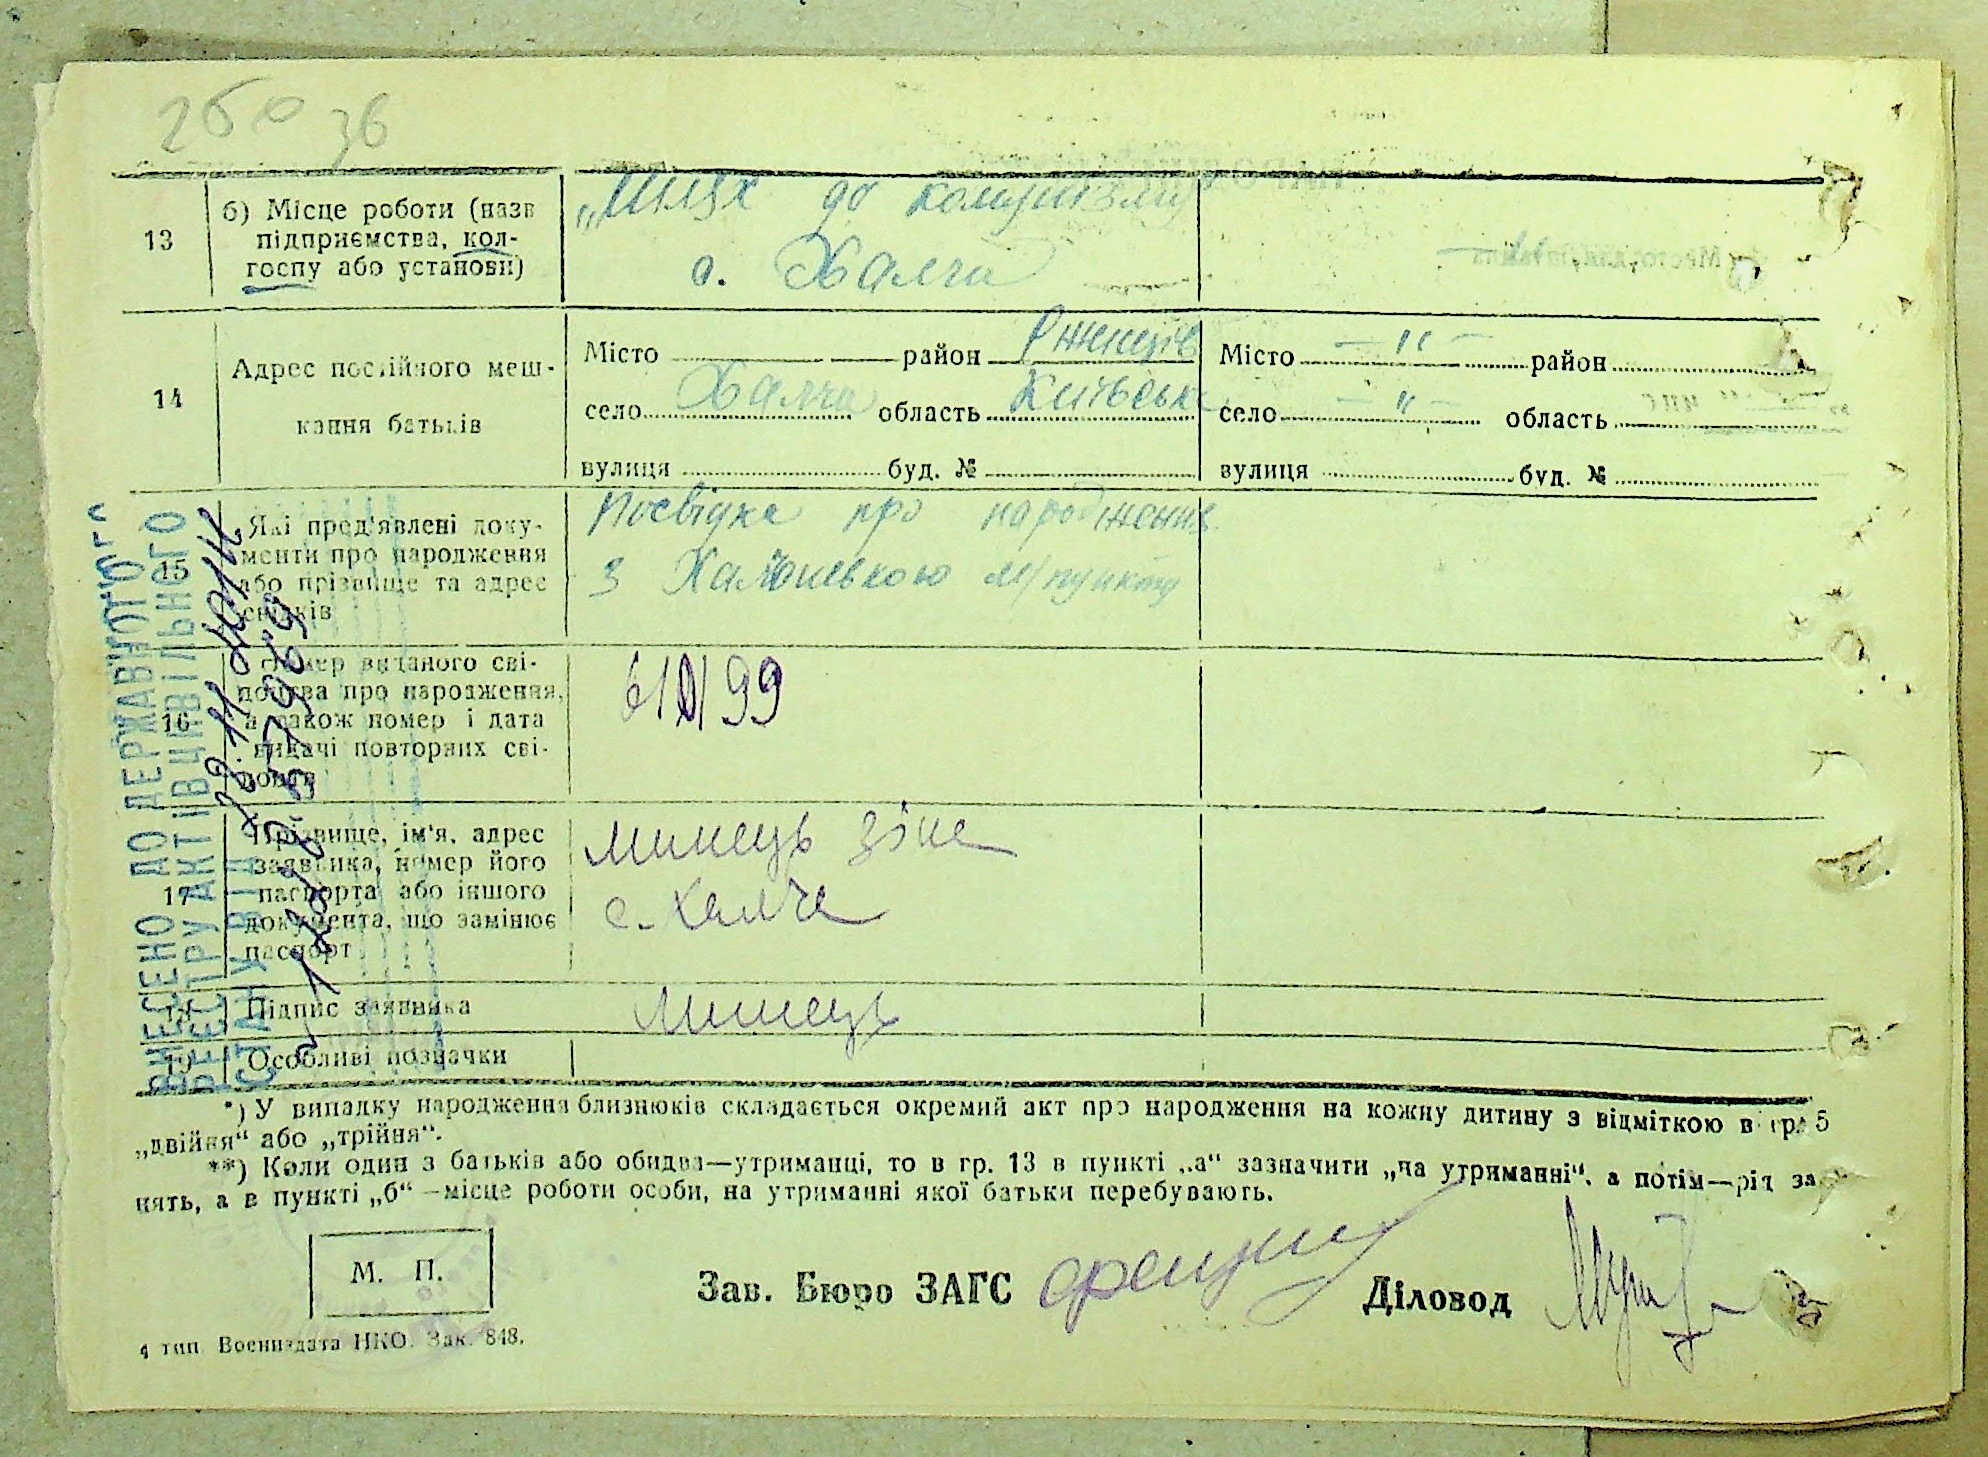 260 зв
13
б) Місце роботи (назв
підприємства, кол-
госпу або установи)
„Шлях до комунізму
с. Халча
14
Адрес постійного меш-
кання батьків
Місто район Ржищів
село Халча область Київськ
вулиця буд. №
Місто — " — район
село — " — область
вулиця буд. №
15
Які пред'явлені доку-
менти про народження
або прізвище та адрес
свідків
Посвідка про народження
з Халчанського м/пункту
16
Номер виданого сві-
доцтва про народження,
а також номер і дата
видачі повторних сві-
доцтв
99
17
Прізвище, ім'я, адрес
заявника, номер його
паспорта або іншого
документа, що замінює
паспорт
с. Халча
18
Підпис заявника
19
Особливі позначки
ВНЕСЕНО ДО ДЕРЖАВНОГО
РЕЄСТРУ АКТІВ ЦИВІЛЬНОГО
СТАНУ
*) У випадку народження близнюків складається окремий акт про народження на кожну дитину з відміткою в гр. 5
„двійня“ або „трійня“.
**) Коли один з батьків або обидва—утриманці, то в гр. 13 в пункті „а“ зазначити „на утриманні“, а потім—рід за
нять, а в пункті „б“—місце роботи особи, на утриманні якої батьки перебувають.
М. П.
Зав. Бюро ЗАГС
Діловод
4 тип. Воениздата НКО. Зак. 848.